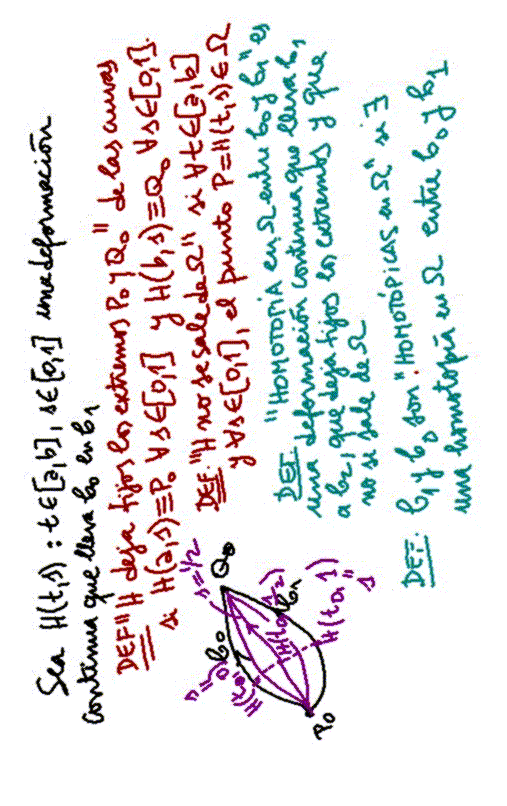 Sea H(t,s) : t∈[a,b], s∈[0,1] una deformación
continua que lleva b0 en b1
DEF "H deja fijos los extremos P0 y Q0" de las curvas
si H(a,s)≡P0 ∀s∈[0,1] y H(b,s)≡Q0 ∀s∈[0,1].
DEF. "H no se sale de Ω" si ∀t∈[a,b]
y ∀s∈[0,1], el punto P=H(t,s)∈Ω
DEF. "HOMOTOPIA en Ω entre b0 y b1" es
una deformación continua que lleva b1
a b2, que deja fijos los extremos y que
no se sale de Ω
DEF. b1 y b0 son "HOMOTÓPICAS en Ω" si ∃
una homotopía en Ω entre b0 y b1
s=0
b0
s=1/2
Q0
b1
P0
H(t0,1)